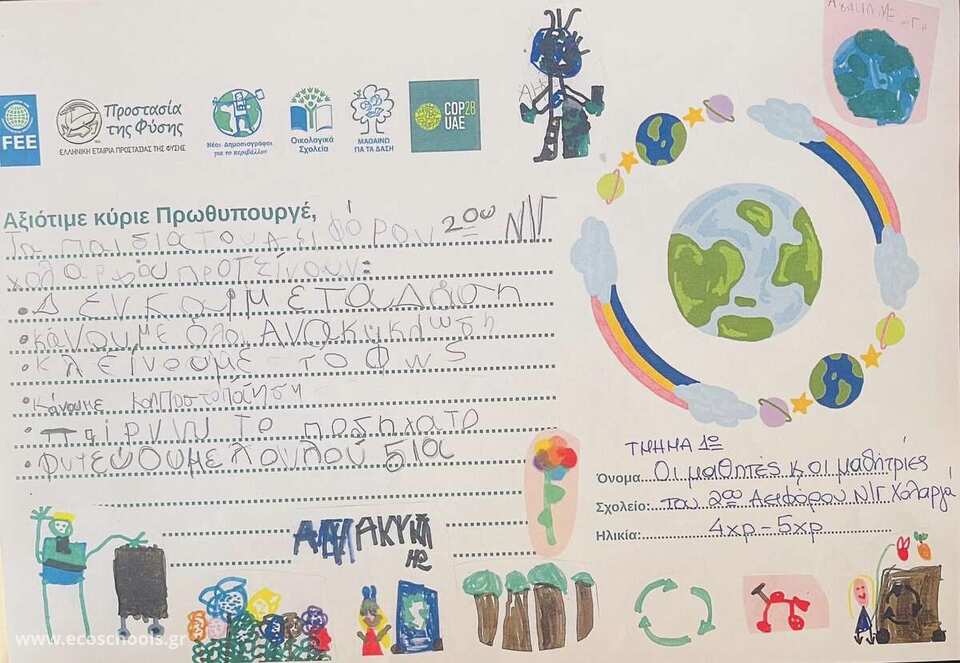 FEE
Προστασία
της Φύσης
ΕΛΛΗΝΙΚΗ ΕΤΑΙΡΙΑ ΠΡΟΣΤΑΣΙΑΣ ΤΗΣ ΦΥΣΗΣ
Νέοι Δημοσιογράφοι
για το περιβάλλον
Οικολογικά
Σχολεία
ΜΑΘΑΙΝΩ
ΓΙΑ ΤΑ ΔΑΣΗ
COP28
UAE
Αξιότιμε κύριε Πρωθυπουργέ,
Τα παιδιά του Αειφόρου 2ου Ν/Γ
Χολαργού προτείνουν:
• Δεν καίμε τα Δάση
• κάνουμε όλοι Ανακύκλωση
• κλείνουμε το Φως
• κάνουμε κομποστοποίηση
• παίρνω το ποδήλατο
• Φυτεύουμε λουλούδια
ΤΜΗΜΑ 1ο
Όνομα Οι μαθητές και μαθήτριες
Σχολείο: του 2ου Αειφόρου Ν/Γ Χολαργού
Ηλικία: 4χρ - 5χρ
www.ecoschools.gr